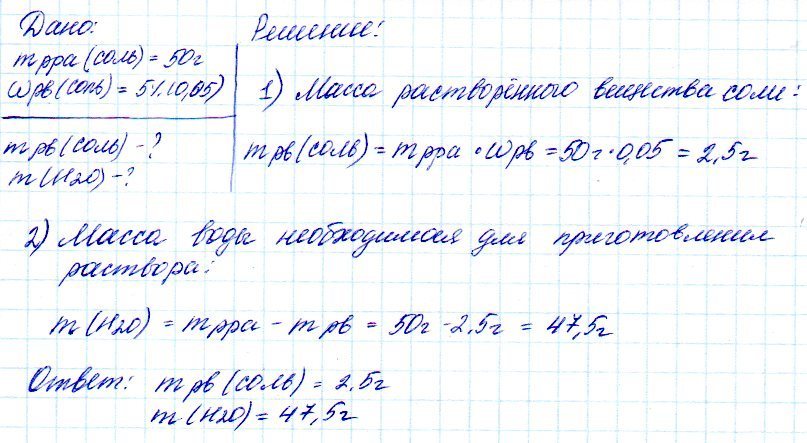 Дано:
mрра(соль) = 50г
ωрв(соль) = 5%(0,05)
mрв(соль) - ?
m(H2O) - ?
Решение:
1) Масса растворённого вещества соли:
mрв(соль) = mрра · ωрв = 50г · 0,05 = 2,5г
2) Масса воды необходимая для приготовления
раствора:
m(H2O) = mрра - mрв = 50г - 2,5г = 47,5г
Ответ: mрв(соль) = 2,5г
m(H2O) = 47,5г